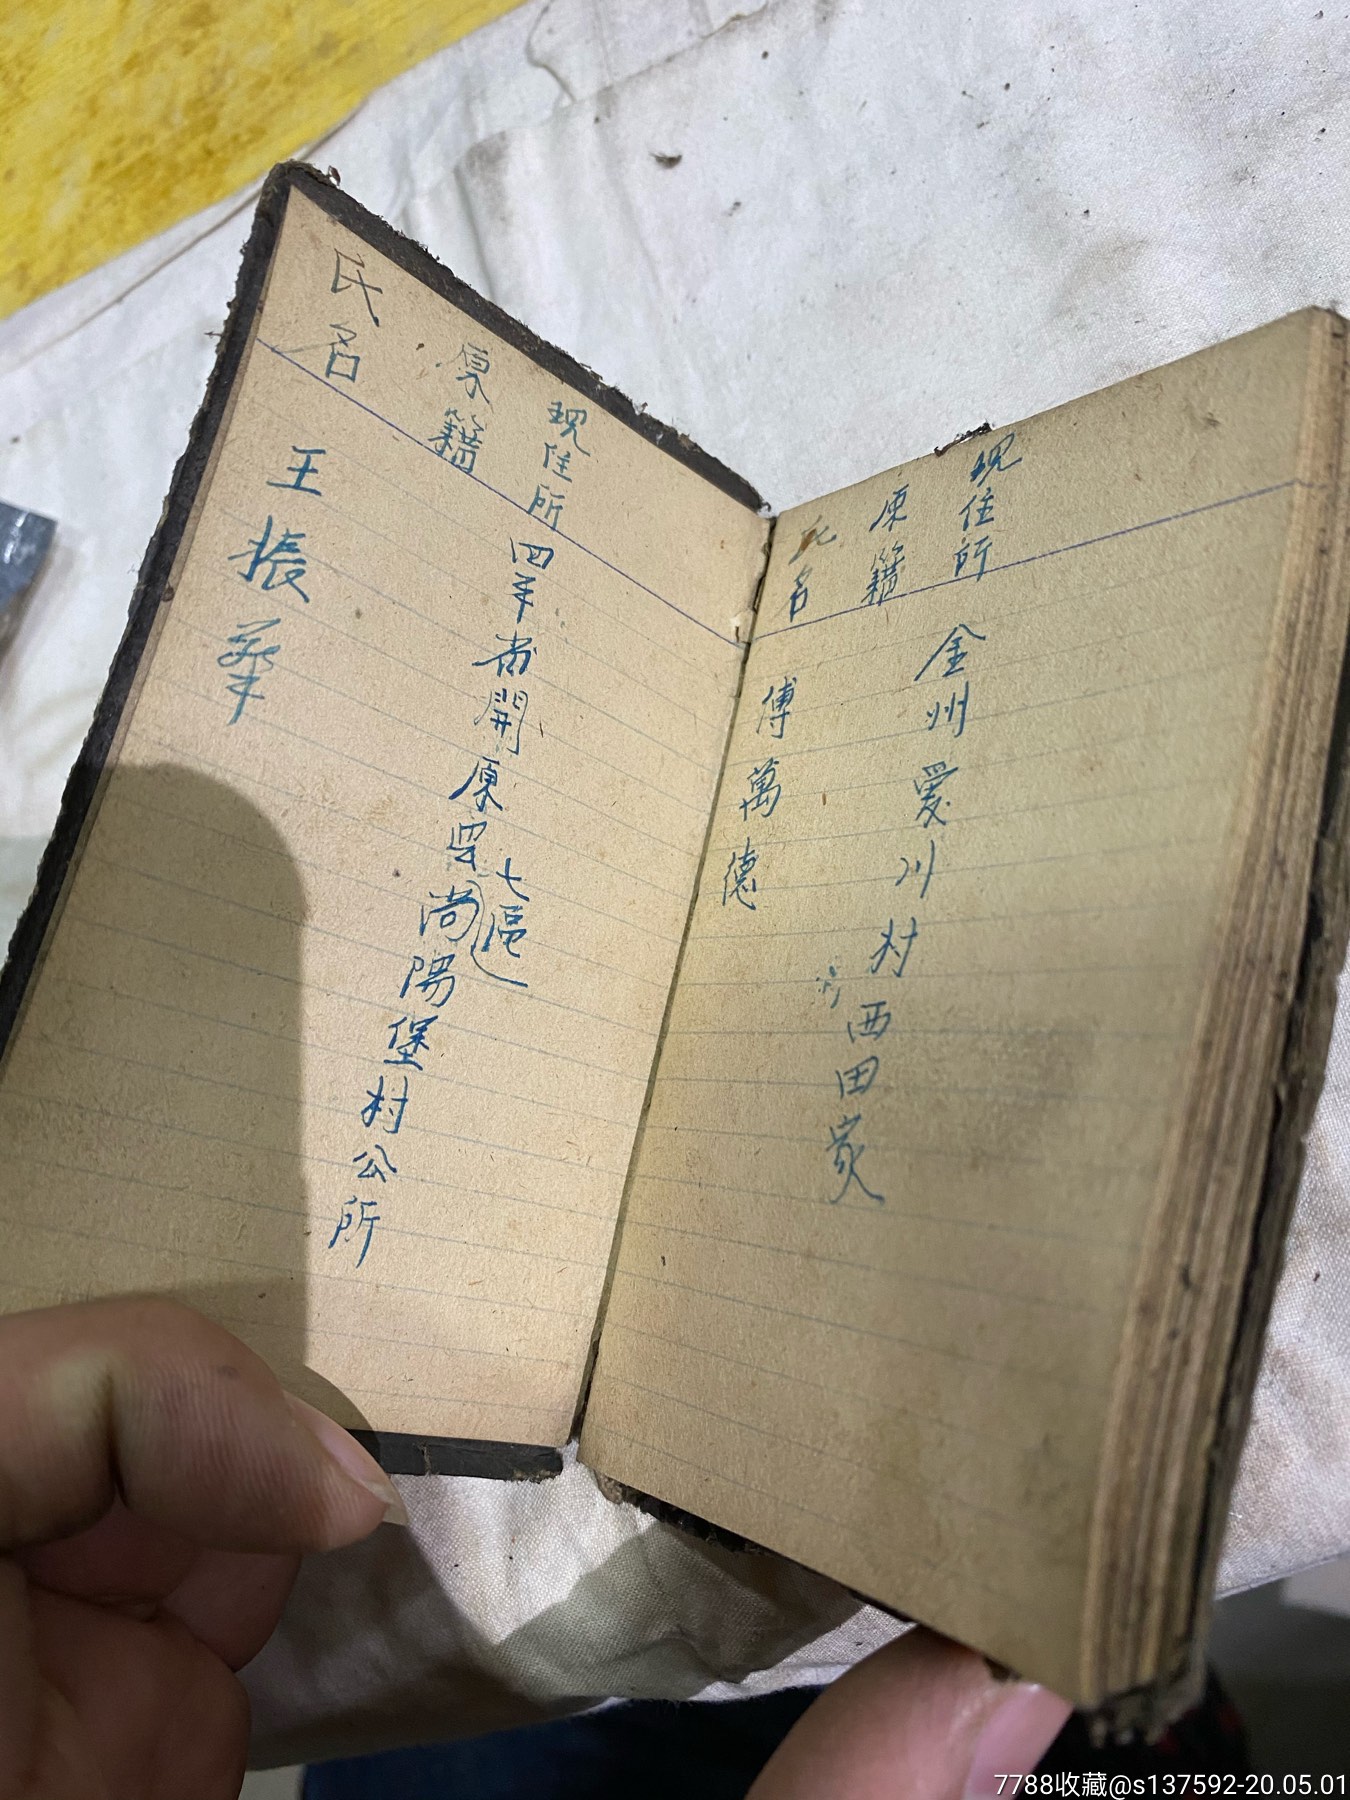 现住所 金州愛川村西田家
原籍
氏名 傅萬德
现住所 四平省開原县尚陽堡村公所
七區
原籍
氏名 王振華
7788收藏@s137592-20.05.01